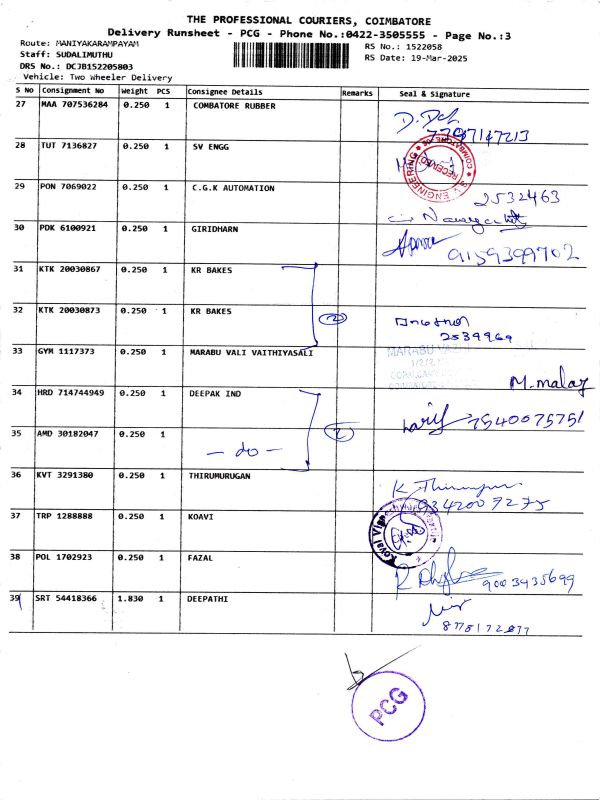 THE PROFESSIONAL COURIERS, COIMBATORE
Delivery Runsheet - PCG - Phone No.:0422-3505555 - Page No.:3
Route: MANIYAKARAMPAYAM
RS No.: 1522058
Staff: SUDALIMUTHU
RS Date: 19-Mar-2025
DRS No.: DCJB152205803
Vehicle: Two Wheeler Delivery
S No Consignment No Weight PCS Consignee Details Remarks Seal & Signature
27 MAA 707536284 0.250 1 COMBATORE RUBBER
28 TUT 7136827 0.250 1 SV ENGG
RECEIVED
29 PON 7069022 0.250 1 C.G.K AUTOMATION
2532463
30 PDK 6100921 0.250 1 GIRIDHARN
9159399702
31 KTK 20030867 0.250 1 KR BAKES
32 KTK 20030873 0.250 1 KR BAKES
2
2539969
33 GYM 1117373 0.250 1 MARABU VALI VAITHIYASALI
M. malar
34 HRD 714744949 0.250 1 DEEPAK IND
7540075751
35 AMD 30182047 0.250 1
- do -
2
36 KVT 3291380 0.250 1 THIRUMURUGAN
9342007275
37 TRP 1288888 0.250 1 KOAVI
38 POL 1702923 0.250 1 FAZAL
9003435699
39 SRT 54418366 1.830 1 DEEPATHI
PCG